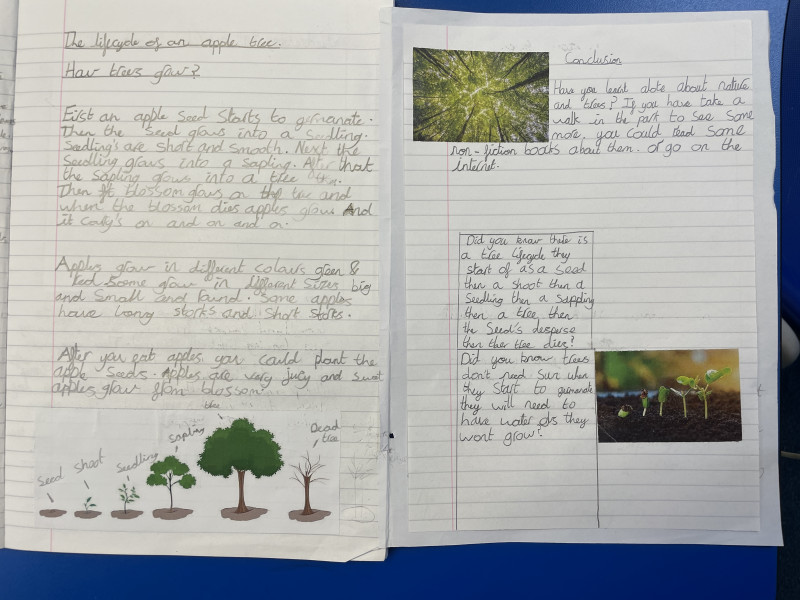 The lifecycle of an apple tree.
How trees grow?
First an apple seed starts to germanate.
Then the seed grows into a seedling.
Seedling's are short and smooth. Next the
seedling grows into a sapling. After that
the sapling grows into a tree
Then blossom grows on the tree and
when the blossom dies apples grow And
it carry's on and on and on.
Apples grow in different colours green &
red. Some grow in different sizes big
and small and round. Some apples
have long storks and short storks.
After you eat apples you could plant the
apple seeds. Apples are very juicy and sweet
apples grow from blossom.
seed
shoot
seedling
sapling
tree
Dead
tree
Conclusion
Have you learnt alote about nature
and trees? If you have take a
walk in the park to see some
more, you could read some
non-fiction books about them. or go on the
internet.
Did you know there is
a tree lifecycle they
start of as a seed
then a shoot then a
Seedling then a sappling
then a tree then
the seed's desperse
then ther tree dies?
Did you know trees
don't need sun when
they start to germanate
they will need to
have water they
wont grow?